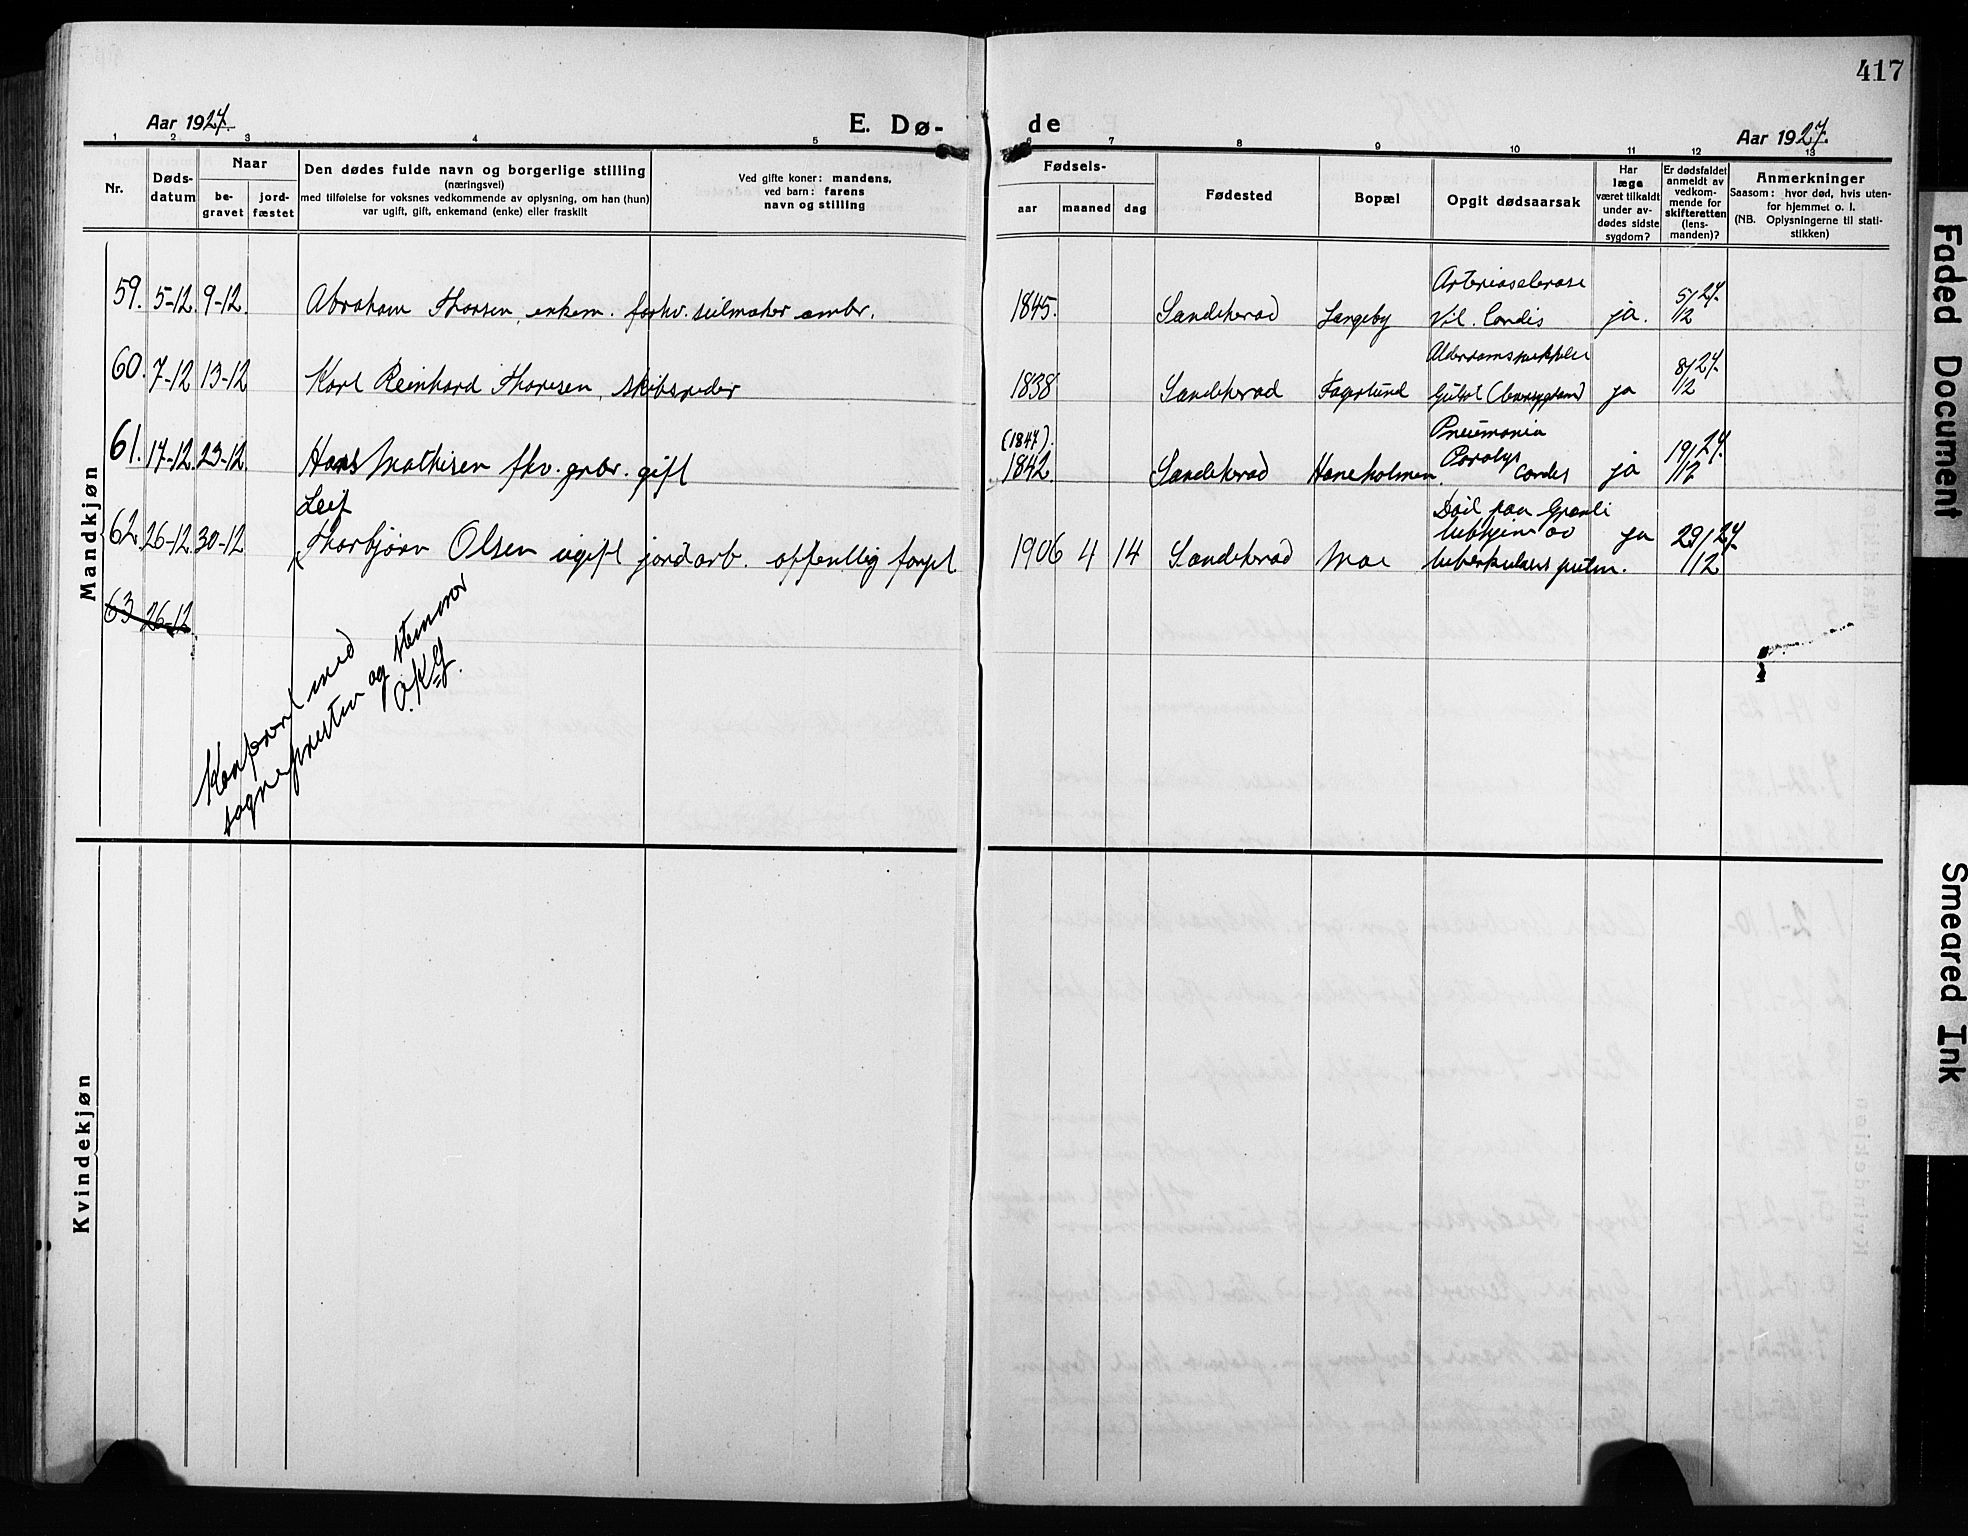 417
Aar 1927.
E. Dø-
de
Aar 1927.
1 2 3 4 5 6 7 8 9 10 11 12 13
Nr.
Døds-
datum
Naar
be-
gravet
jord-
fæstet
Den dødes fulde navn og borgerlige stilling
(næringsvei)
med tilføielse for voksnes vedkommende av oplysning, om han (hun)
var ugift, gift, enkemand (enke) eller fraskilt
Ved gifte koner: mandens,
ved barn: farens
navn og stilling
Fødsels-
aar
maaned
dag
Fødested
Bopæl
Opgit dødsaarsak
Har
læge
været tilkaldt
under av-
dødes sidste
sygdom?
Er dødsfaldet
anmeldt av
vedkom-
mende for
skifteretten
(lens-
manden)?
Anmerkninger
Saasom: hvor død, hvis uten-
for hjemmet o. l.
(NB. Oplysningerne til stati-
stikken)
Mandkjøn
59. 5-12 9-12 Abraham Thorsen, enkem. forhv. seilmaker 1845. Sandeherad Langeby Arteriosclerose
Vit. Cordis ja. 5/12 27.
60. 7-12 13-12 Karl Reinhard Thoresen, skibsreder 1838 Sandeherad Fagerlund ja 8/12 27.
61. 17-12 23-12 Hans Mathisen fhv. grbr. gift (1847).
1842. Sandeherad Haneholmen Pneumonia
Paralys cordis ja 19/12 27.
Leif
62. 26-12 30-12 Thorbjørn Olsen ugift jordarb. offentlig forsørget 1906 4 14 Sandeherad Moe Død paa Granli
tubhjem av
tuberkulosis pulm. ja 29/12 27.
63 26-12
Konferert med
sogneprestens og stemmer
O.K.G.
Kvindekjøn
Faded Document
Smeared Ink